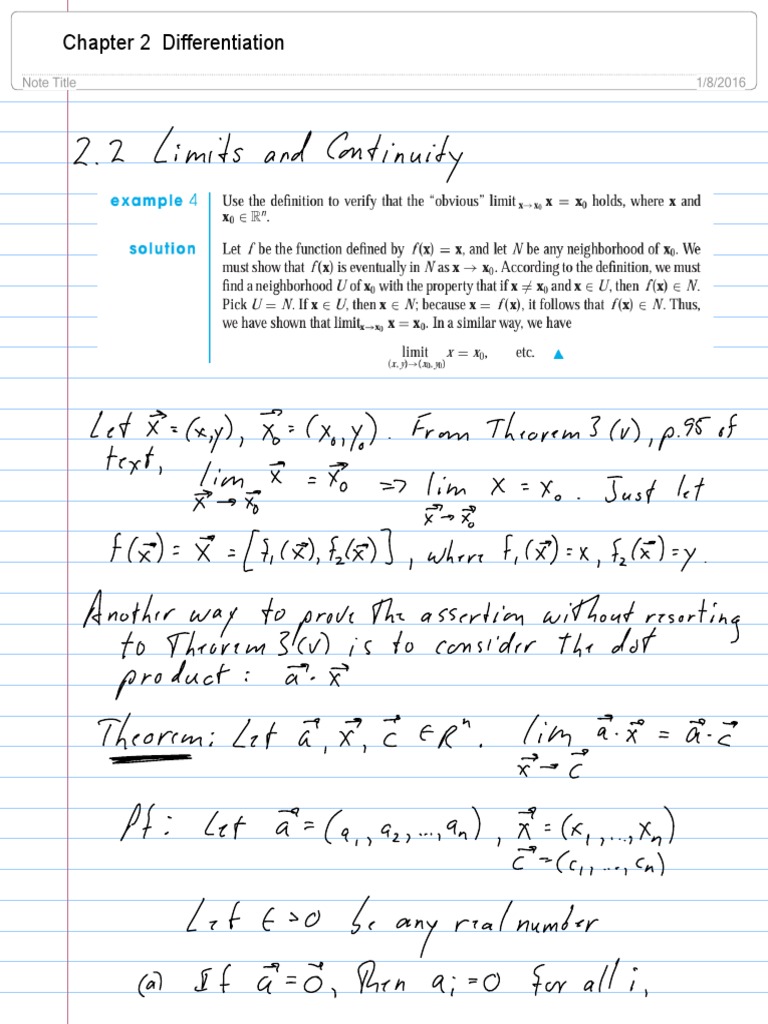 Chapter 2 Differentiation
Note Title
1/8/2016
2.2 Limits and Continuity
example 4 Use the definition to verify that the "obvious" limit x→x₀ x = x₀ holds, where x and
x₀ ∈ ℝⁿ.
solution Let f be the function defined by f(x) = x, and let N be any neighborhood of x₀. We
must show that f(x) is eventually in N as x → x₀. According to the definition, we must
find a neighborhood U of x₀ with the property that if x ≠ x₀ and x ∈ U, then f(x) ∈ N.
Pick U = N. If x ∈ U, then x ∈ N; because x = f(x), it follows that f(x) ∈ N. Thus,
we have shown that limit x→x₀ x = x₀. In a similar way, we have
limit x = x₀, etc. ▲
(x, y)→(x₀, y₀)
Let x⃗ = (x,y), x⃗₀ = (x₀, y₀). From Theorem 3 (v), p.95 of
text, lim x⃗ = x⃗₀ => lim x = x₀. Just let
x⃗→x⃗₀ x⃗→x⃗₀
f(x⃗) = x⃗ = [f₁(x⃗), f₂(x⃗)], where f₁(x⃗) = x, f₂(x⃗) = y.
Another way to prove the assertion without resorting
to Theorem 3(v) is to consider the dot
product: a⃗ · x⃗
Theorem: Let a⃗, x⃗, c⃗ ∈ Rⁿ. lim a⃗ · x⃗ = a⃗ · c⃗
x⃗→c⃗
Pf: Let a⃗ = (a₁, a₂, ..., aₙ), x⃗ = (x₁, ..., xₙ)
c⃗ = (c₁, ..., cₙ)
Let ϵ > 0 be any real number
(a) If a⃗ = 0⃗, Then aᵢ = 0 for all i,